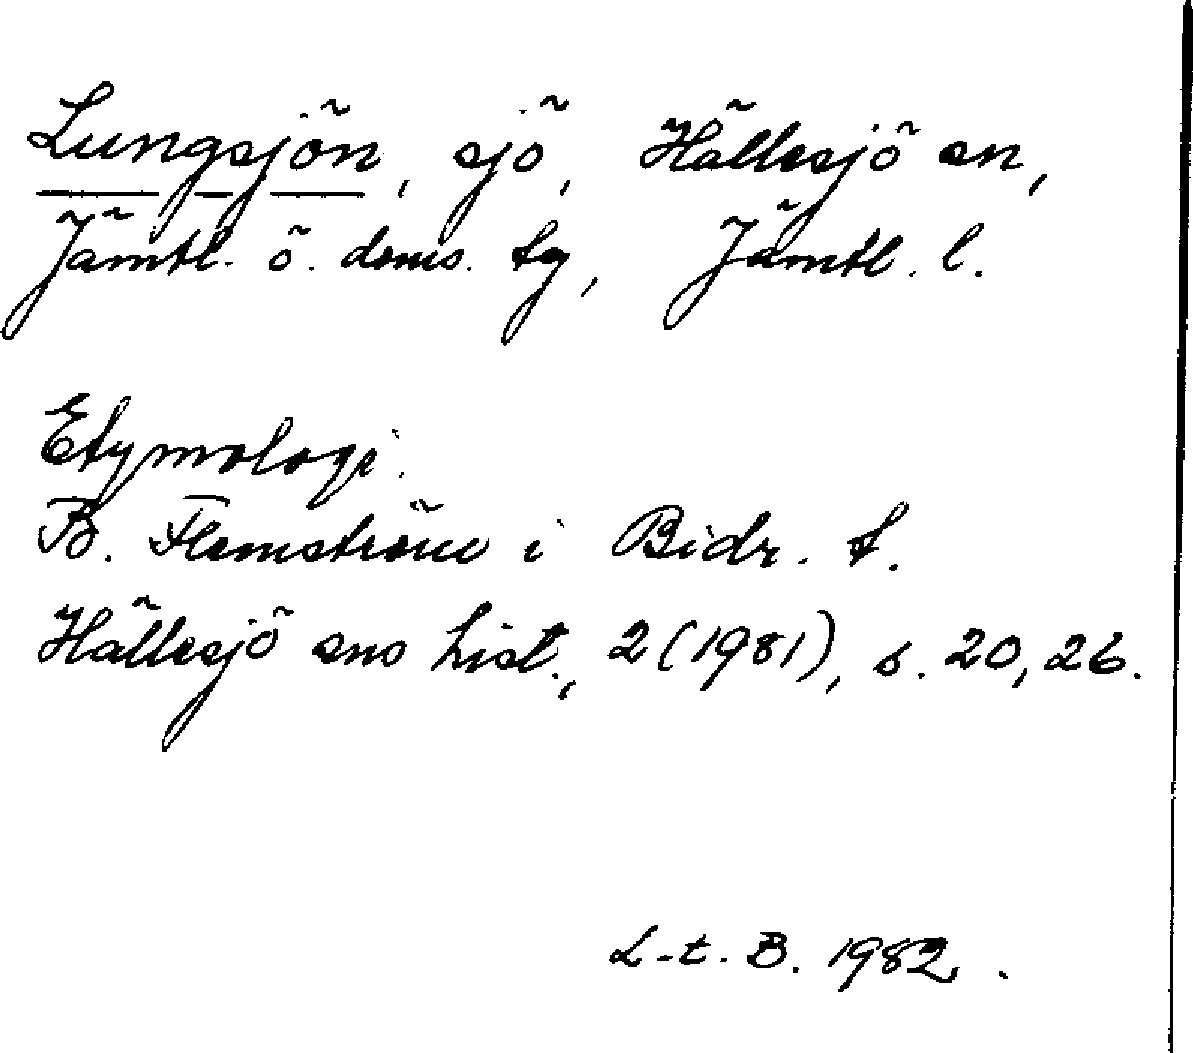 Lungsjön, sjö, Hällesjö sn,
Jämtl. ö. doms. tg, Jämtl. l.
Etymologi.
B. Flemström i Bidr. t.
Hällesjö sns hist., 2 (1981), s. 20, 26.
L-t. B. 1982.